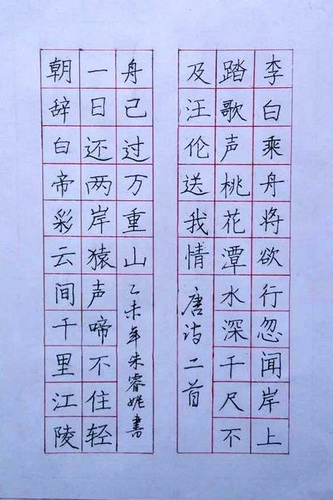 李白乘舟将欲行忽闻岸上
踏歌声桃花潭水深千尺不
及汪伦送我情 唐诗二首
朝辞白帝彩云间千里江陵
一日还两岸猿声啼不住轻
舟己过万重山 乙未年朱睿書